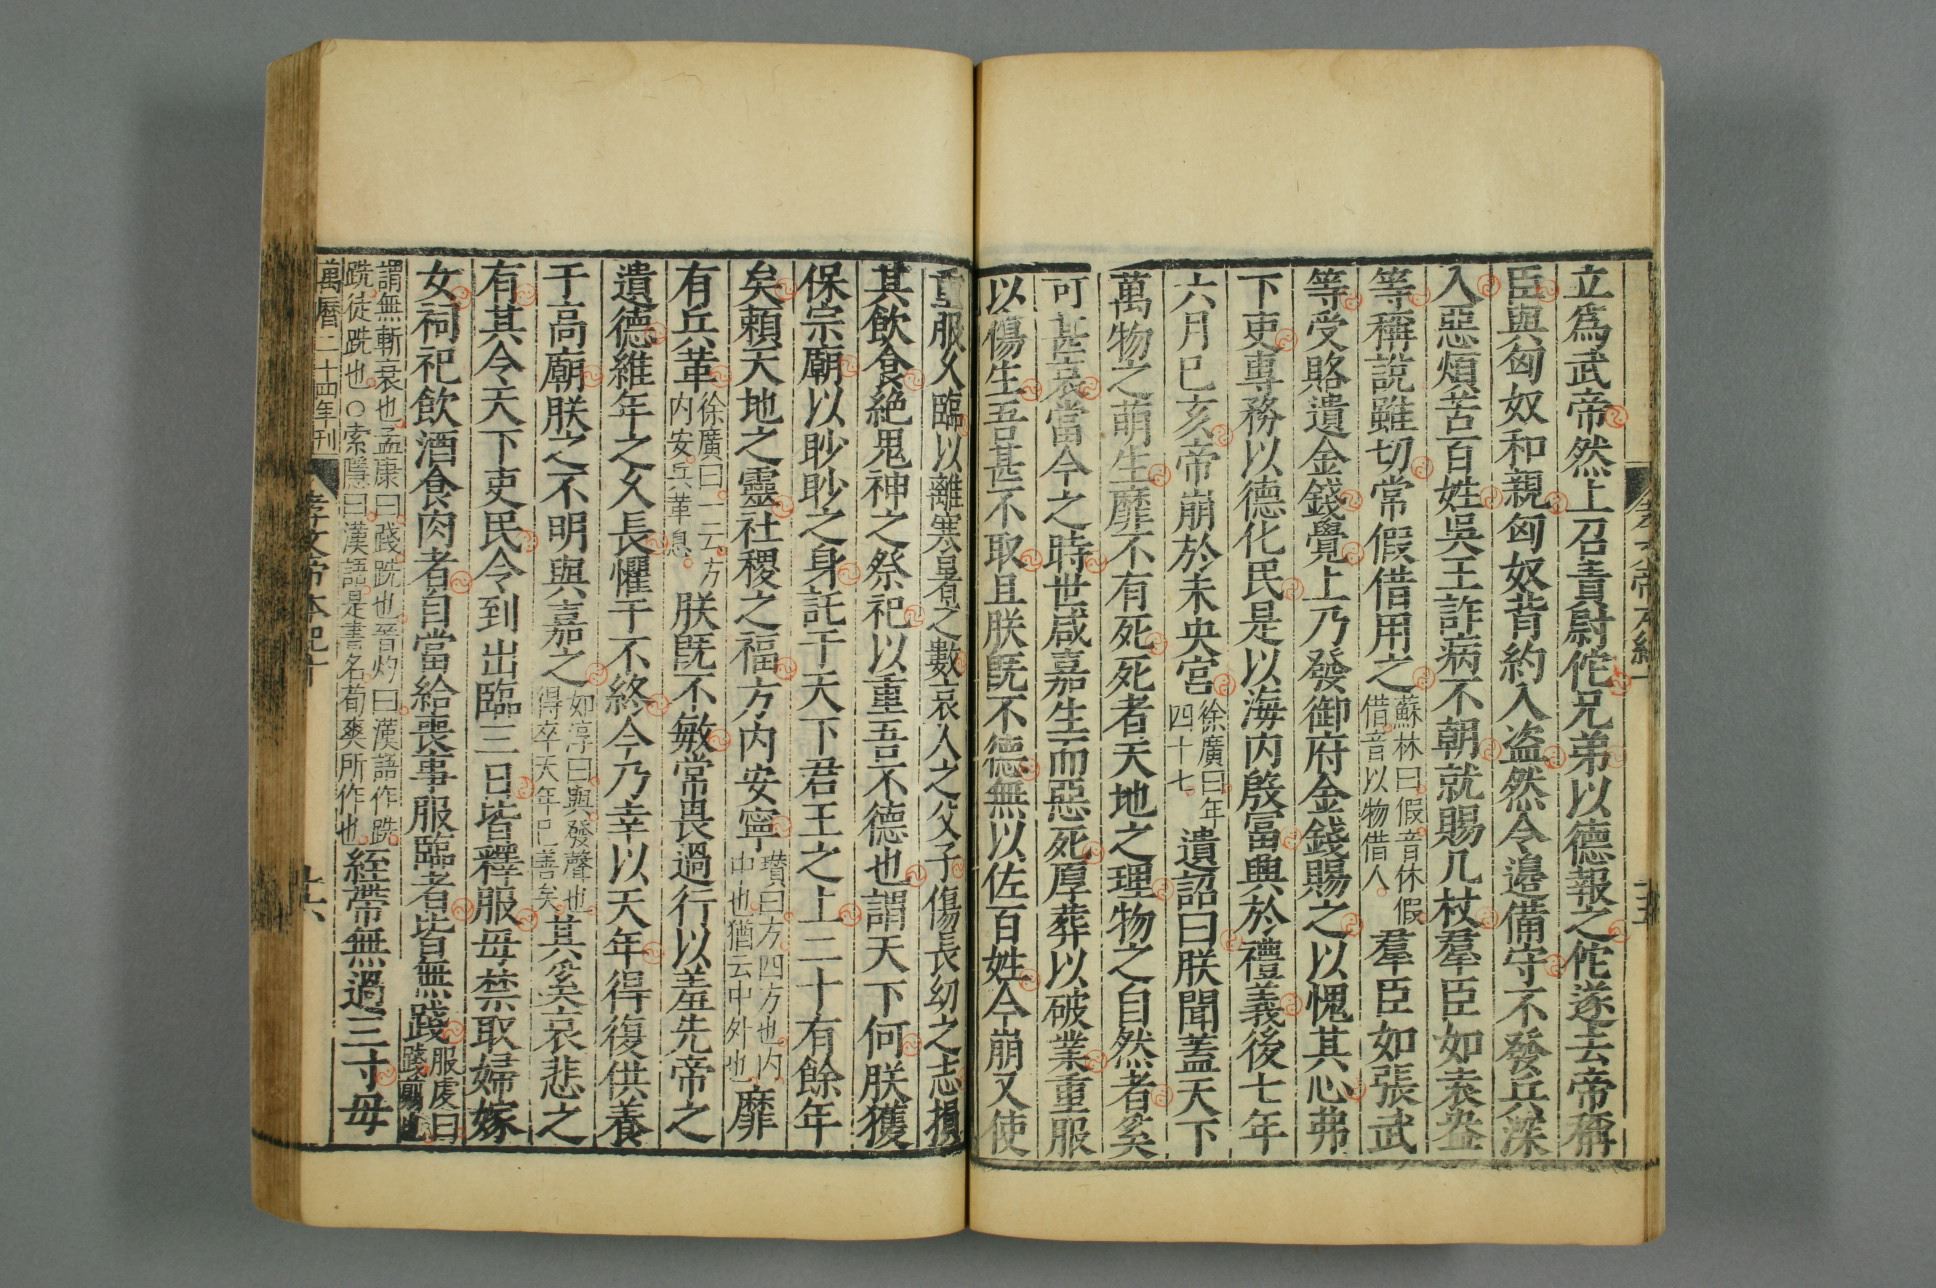 立爲武帝然上召責尉佗兄弟以德報之佗遂去帝稱
臣與匈奴和親匈奴背約入盜然令邊備守不發兵深
入惡煩苦百姓吳王詐病不朝就賜几杖羣臣如袁盎
等稱說雖切常假借用之蘇林曰假音休假借音以物借人羣臣如張武
等受賂遺金錢覺上乃發御府金錢賜之以愧其心弗
下吏專務以德化民是以海內殷富興於禮義後七年
六月己亥帝崩於未央宮徐廣曰年四十七遺詔曰朕聞蓋天下
萬物之萌生靡不有死死者天地之理物之自然者奚
可甚哀當今之時世咸嘉生而惡死厚葬以破業重服
以傷生吾甚不取且朕旣不德無以佐百姓今崩又使
重服久臨以離寒暑之數哀人之父子傷長幼之志損
其飲食絶鬼神之祭祀以重吾不德也謂天下何朕獲
保宗廟以眇眇之身託于天下君王之上二十有餘年
矣賴天地之靈社稷之福方內安寧瓚曰方四方也內中也猶云中外也靡
有兵革徐廣曰一云方內安兵革息朕旣不敏常畏過行以羞先帝之
遺德維年之久長懼于不終今乃幸以天年得復供養
于高廟朕之不明與嘉之如淳曰與發聲也得卒天年已善矣其奚哀悲之
有其令天下吏民令到出臨三日皆釋服毋禁取婦嫁
女祠祀飲酒食肉者自當給喪事服臨者皆無踐服虔曰踐翦也
謂無斬衰也孟康曰踐跣也晉灼曰漢語作跣跣徒跣也○索隱曰漢語是書名荀爽所作也絰帶無過三寸毋
萬曆二十四年刊
孝文帝本紀十
十六